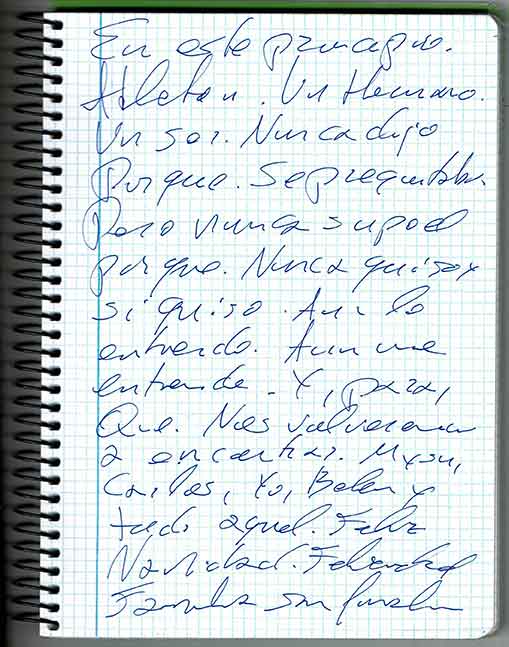 En este principio.
Un Humano.
Un ser. Nunca dijo
Porque. Se preguntaba.
Pero nunca supo el
porque. Nunca quiso y
si quiso. Aun lo
entiendo. Aun me
entiende. Y, para,
Que. Nos volveremos
a encontrar.
Carlos, Yo, Belen y
todo aquel. Feliz
Navidad. Felicidad
Familia